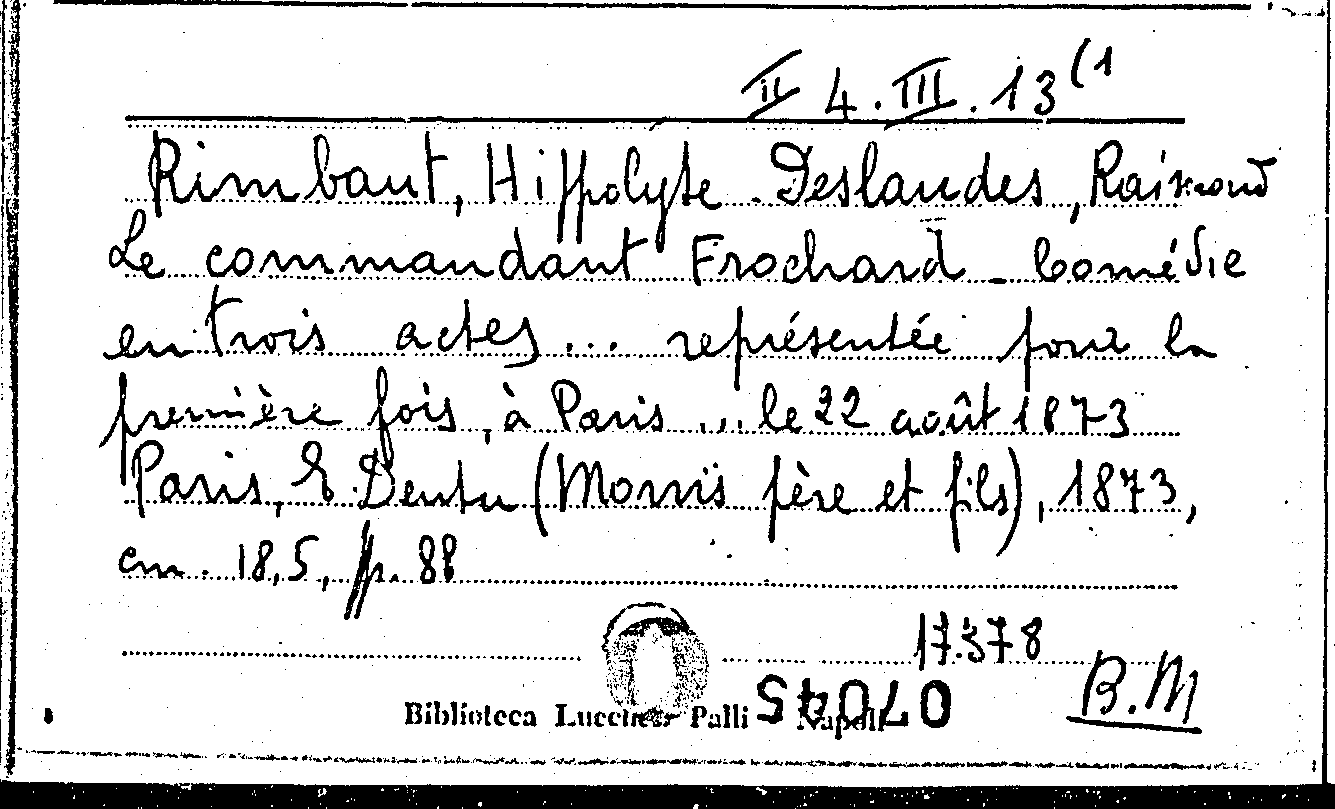 II 4.III.13(1
Rimbaut, Hippolyte - Deslandes, Raimond
Le commandant Frochard - Comédie
en trois actes ... représentée pour la
première fois, à Paris ... le 22 août 1873
Paris, E. Dentu (Morris père et fils), 1873,
cm. 18,5, pp. 88
17378
Biblioteca Lucchesi Palli Napoli
07045
B.M